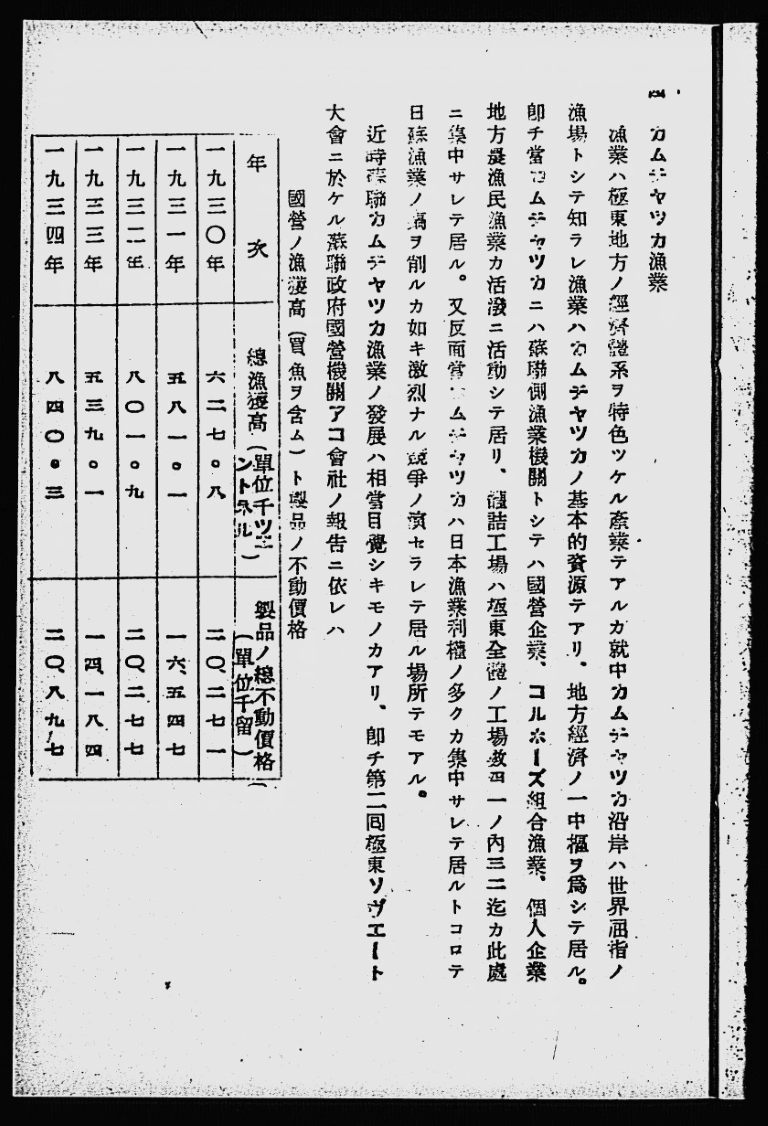 四 カムチヤツカ漁業
漁業ハ極東地方ノ經濟體系ヲ特色ツケル產業テアルカ就中カムチヤツカ沿岸ハ世界屈指ノ
漁場トシテ知ラレ漁業ハカムチヤツカノ基本的資源テアリ、地方經濟ノ一中樞ヲ爲シテ居ル。
卽チ當カムチヤツカニハ蘇聯側漁業機關トシテハ國營企業、コルホーズ組合漁業、個人企業
地方農漁民漁業カ活潑ニ活動シテ居リ、罐詰工場ハ極東全體ノ工場數四一ノ內三二迄カ此處
ニ集中サレテ居ル。又反面當カムチヤツカハ日本漁業利權ノ多クカ集中サレテ居ルトコロテ
日蘇漁業ノ鎬ヲ削ルカ如キ激烈ナル競爭ノ演セラレテ居ル場所テモアル。
近時蘇聯カムチヤツカ漁業ノ發展ハ相當目覺シキモノカアリ、卽チ第二囘極東ソヴエート
大會ニ於ケル蘇聯政府國營機關アコ會社ノ報告ニ依レハ
國營ノ漁獲高(買魚ヲ含ム)ト製品ノ不動價格
年次 總漁獲高(單位千ツエントネル) 製品ノ總不動價格(單位千留)
一九三〇年 六二七。八 二〇、二七一
一九三一年 五八一。一 一六、五四七
一九三二年 八〇一。九 二〇、二七七
一九三三年 五三九。一 一四、一八四
一九三四年 八四〇。三 二〇、八九七